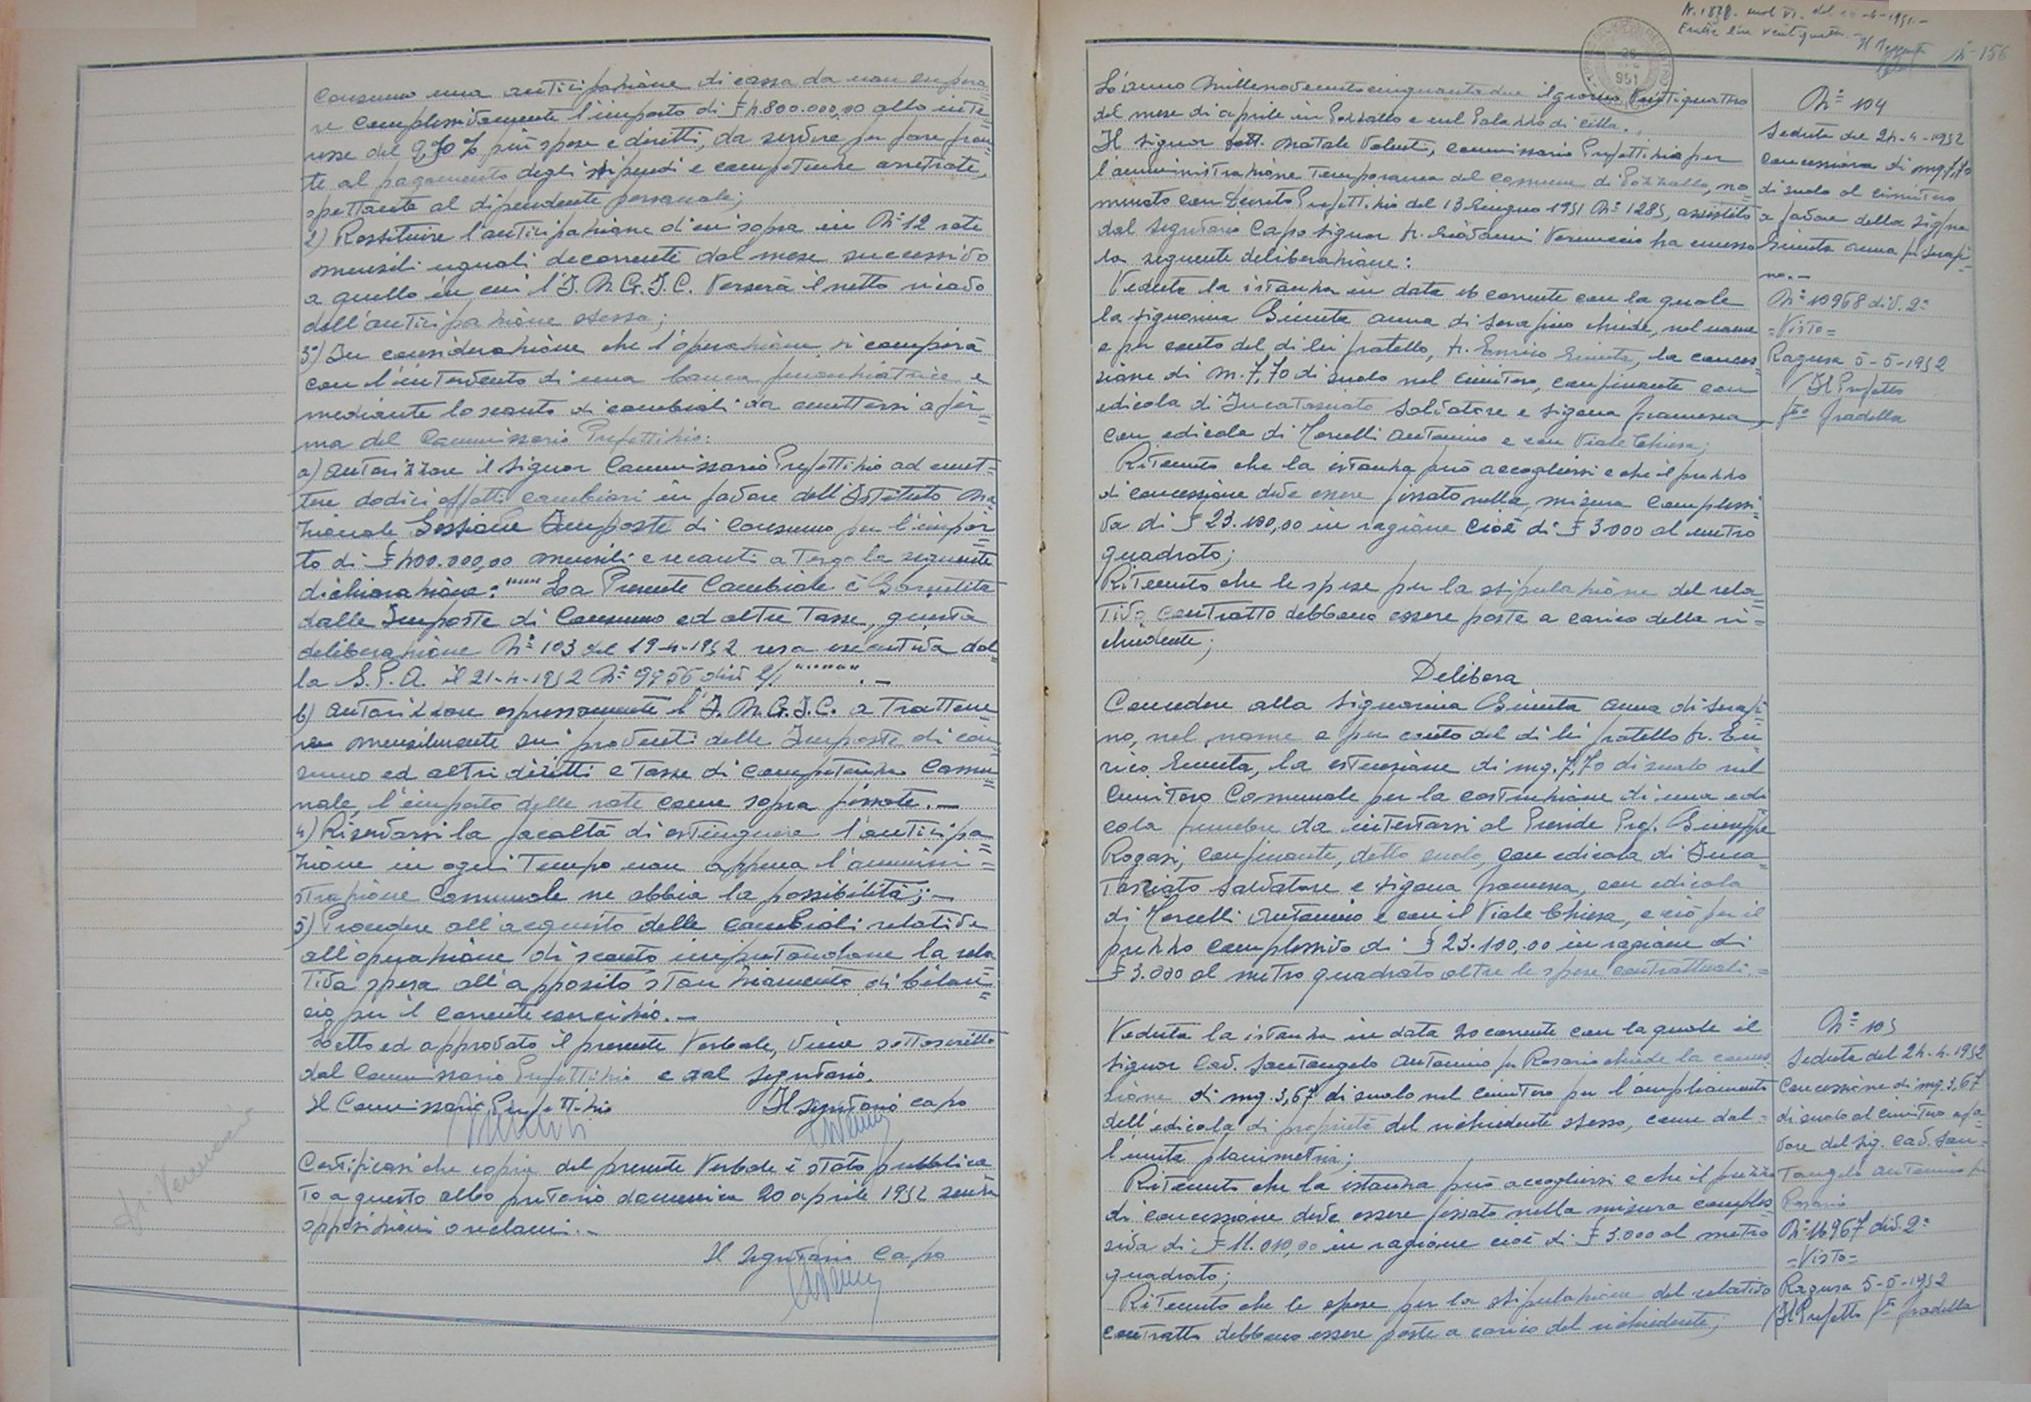 consumo una anticipazione di cassa da non supera=
re complessivamente l'importo di £ 4.800.000,00 allo inte=
resse del 9,70 % più spese e diritti, da servire per fare fron=
te al pagamento degli stipendi e competenze arretrate,
spettante al dipendente personale;
2) Restituire l'anticipazione di cui sopra in N° 12 rate
mensili uguali decorrenti dal mese successivo
a quello in cui l'I.N.G.I.C. verserà il netto ricavo
dell'anticipazione stessa;
3°) In considerazione che l'operazione si compirà
con l'intervento di una banca finanziatrice e
mediante lo sconto di cambiali da emettersi a fir=
ma del Commissario Prefettizio:
a) autorizzare il Signor Commissario Prefettizio ad emet=
tere dodici effetti cambiari in favore dell'Istituto Na=
zionale Gestione Imposte di Consumo per l'impor=
to di £ 400.000,00 mensili e recanti a tergo la seguente
dichiarazione: """ La Presente Cambiale è Garantita
dalle Imposte di Consumo ed altre Tasse, giusta
deliberazione N° 103 del 19-4-1952 resa esecutiva dal=
la G.P.A. il 21-4-1952 N° 9956 div 2/1 """ . —
b) autorizzare espressamente l'I.N.G.I.C. a trattene=
re mensilmente sui proventi delle Imposte di con=
sumo ed altri diritti e tasse di competenza Comu=
nale, l'importo delle rate come sopra fissate. —
4) Riservarsi la facoltà di estinguere l'anticipa=
zione in ogni tempo non appena l'ammini=
strazione Comunale ne abbia la possibilità; —
5) Provvedere all'acquisto delle cambiali relative
all'operazione di sconto imputandone la rela=
tiva spesa all'apposito stanziamento di bilan=
cio per il corrente esercizio. —
Letto ed approvato il presente Verbale, viene sottoscritto
dal Commissario Prefettizio e dal Segretario.
Il Commissario Prefettizio Il Segretario capo
Certificasi che copia del presente Verbale è stata pubblica
ta a questo albo pretorio domenica 20 aprile 1952 senza
opposizioni o reclami. —
Il Segretario Capo
L'anno Millenovecentocinquantadue il giorno Ventiquattro
del mese di aprile in Pozzallo e nel Palazzo di città.
Il Signor Dott. Natale Valenti, Commissario Prefettizio per
l'amministrazione Temporanea del Comune di Pozzallo, no=
minato con Decreto Prefettizio del 13 Giugno 1951 N° 1285, assistito
dal Segretario Capo Signor Dr. Giovanni Vernuccio ha emesso
la seguente deliberazione:
Veduta la istanza in data 16 corrente con la quale
la Signorina Giunta Anna di Serafino chiede, nel nome
e per conto del di lei fratello, Dr. Enrico Giunta, la conces=
sione di m. 7,70 di suolo nel Cimitero, confinante con
edicola di Incatasciato Salvatore e Sigona Francesca,
con edicola di Morselli Antonino e con Viale Chiesa;
Ritenuto che la istanza può accogliersi e che il prezzo
di concessione deve essere fissato nella misura complessi=
va di £ 23.100,00 in ragione cioè di £ 3.000 al metro
quadrato;
Ritenuto che le spese per la stipulazione del rela=
tivo contratto debbono essere poste a carico della ri=
chiedente;
Delibera
Concedere alla Signorina Giunta Anna di Serafi=
no, nel nome e per conto del di lei fratello Dr. En=
rico Giunta, la estensione di mq. 7,70 di suolo nel
Cimitero Comunale per la costruzione di una edi
cola funebre da intestarsi al Preside Prof. Giuseppe
Rogasi, confinante, detto suolo, con edicola di Inca=
tasciato Salvatore e Sigona Francesca, con edicola
di Morselli Antonino e con il Viale Chiesa, e ciò per il
prezzo complessivo di £ 23.100,00 in ragione di
£ 3.000 al metro quadrato oltre le spese contrattuali. =
Veduta la istanza in data 20 corrente con la quale il
Signor Cav. Santangelo Antonino fu Rosario chiede la conces
sione di mq. 3,67 di suolo nel Cimitero per l'ampliamento
dell'edicola di proprietà del richiedente stesso, come dal=
l'unita planimetria;
Ritenuto che la istanza può accogliersi e che il prezzo
di concessione deve essere fissato nella misura comples=
siva di £ 11.010,00 in ragione cioè di £ 3.000 al metro
quadrato;
Ritenuto che le spese per la stipulazione del relativo
contratto debbono essere poste a carico del richiedente;
N° 104
Seduta del 24-4-1952
Concessione di mq. 7,70
di suolo al Cimitero
a favore della Sig.na
Giunta Anna fu Serafi=
no. —
N° 10968 div. 2ª
=Visto=
Ragusa 5-5-1952
Il Prefetto
fto Gradella
N° 105
Seduta del 24-4-1952
Concessione di mq. 3,67
di suolo al Cimitero a fa=
vore del Sig. Cav. San=
tangelo Antonino fu
Rosario
N° 10967 div. 2ª
=Visto=
Ragusa 5-5-1952
Il Prefetto fto Gradella